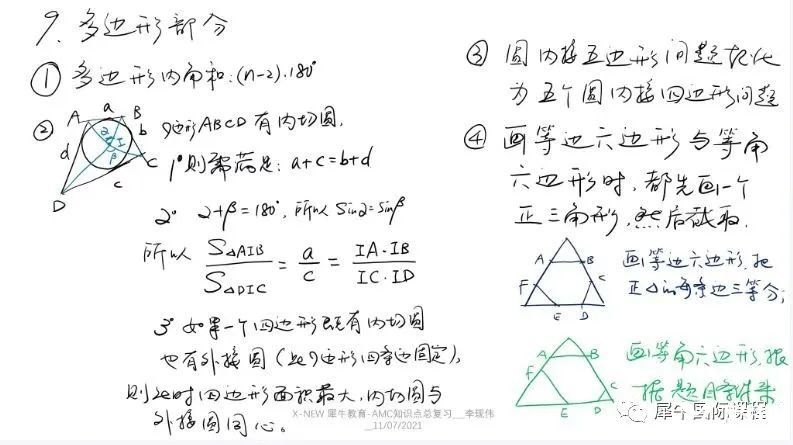 9、多边形部分
① 多边形内角和:(n-2)·180°
② A a B
b
C
c
D
d
α I
β
四边形ABCD有内切圆,
1° 则需满足: a+c=b+d
2° α+β=180°, 所以 sinα=sinβ
所以 S△AIB/S△DIC = a/c = IA·IB/IC·ID
3° 如果一个四边形既有内切圆
也有外接圆(此四边形四条边固定),
则此时四边形面积最大,内切圆与
外接圆同心。
③ 圆内接五边形问题转化
为五个圆内接四边形问题
④ 画等边六边形与等角
六边形时,都先画一个
正三角形,然后截取.
A B
F C
E D
画等边六边形,把
正△的每条边三等分;
A B
F C
E D
画等角六边形,根
据题目条件来
X-NEW 犀牛教育-AMC知识点总复习__李现伟
__11/07/2021
犀牛国际课程